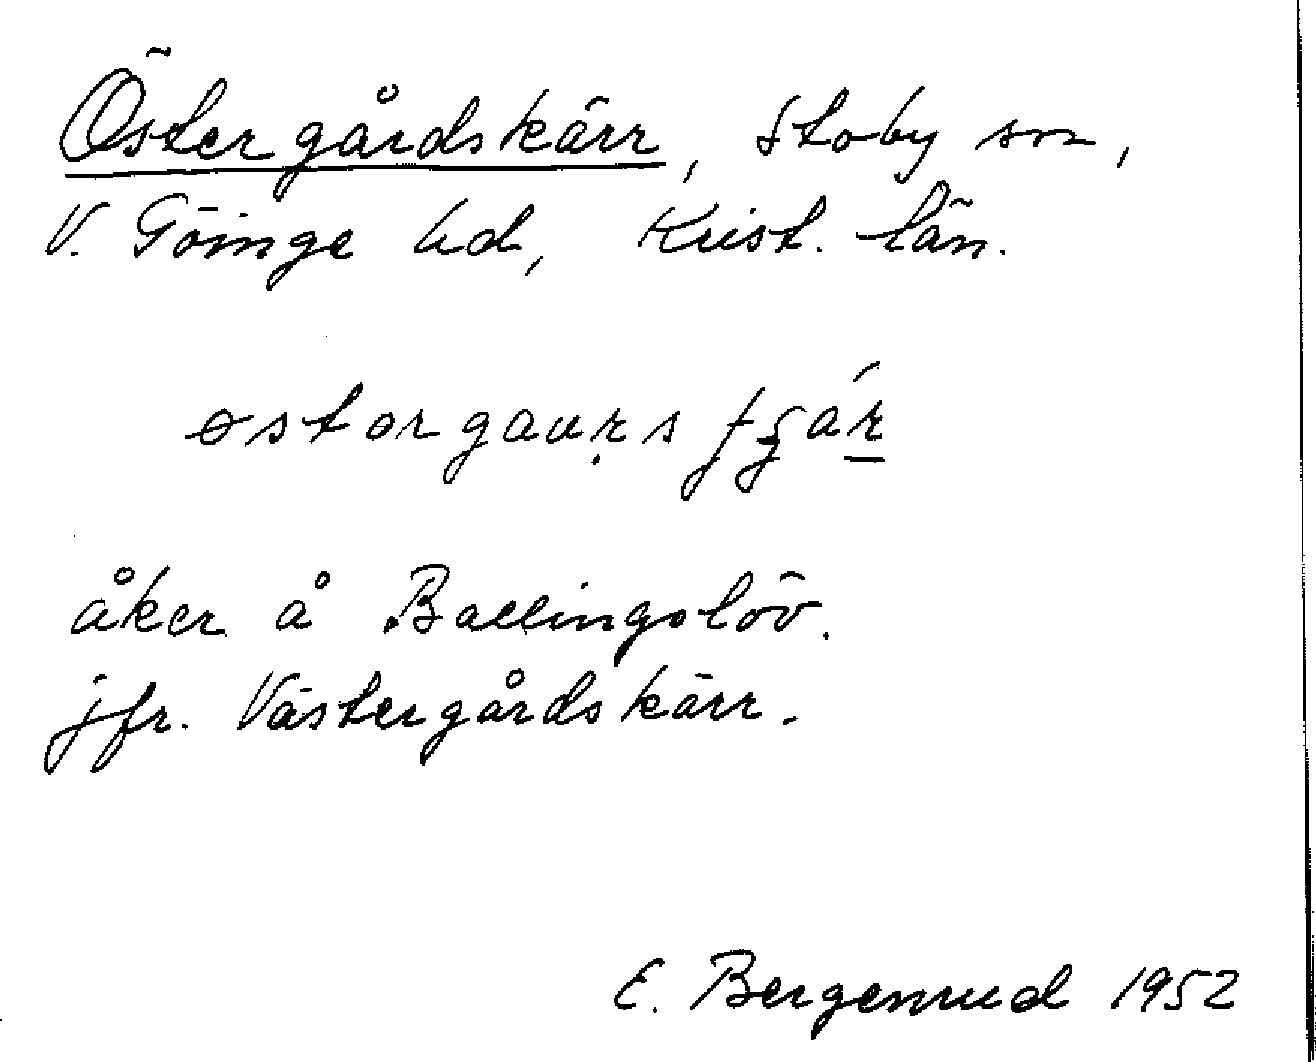 Östergårdskärr, Stoby sn,
V. Göinge hd, Krist. län.
østorgaurs
åker å Ballingslöv.
jfr. Västergårdskärr.
E. Bergenrud 1952